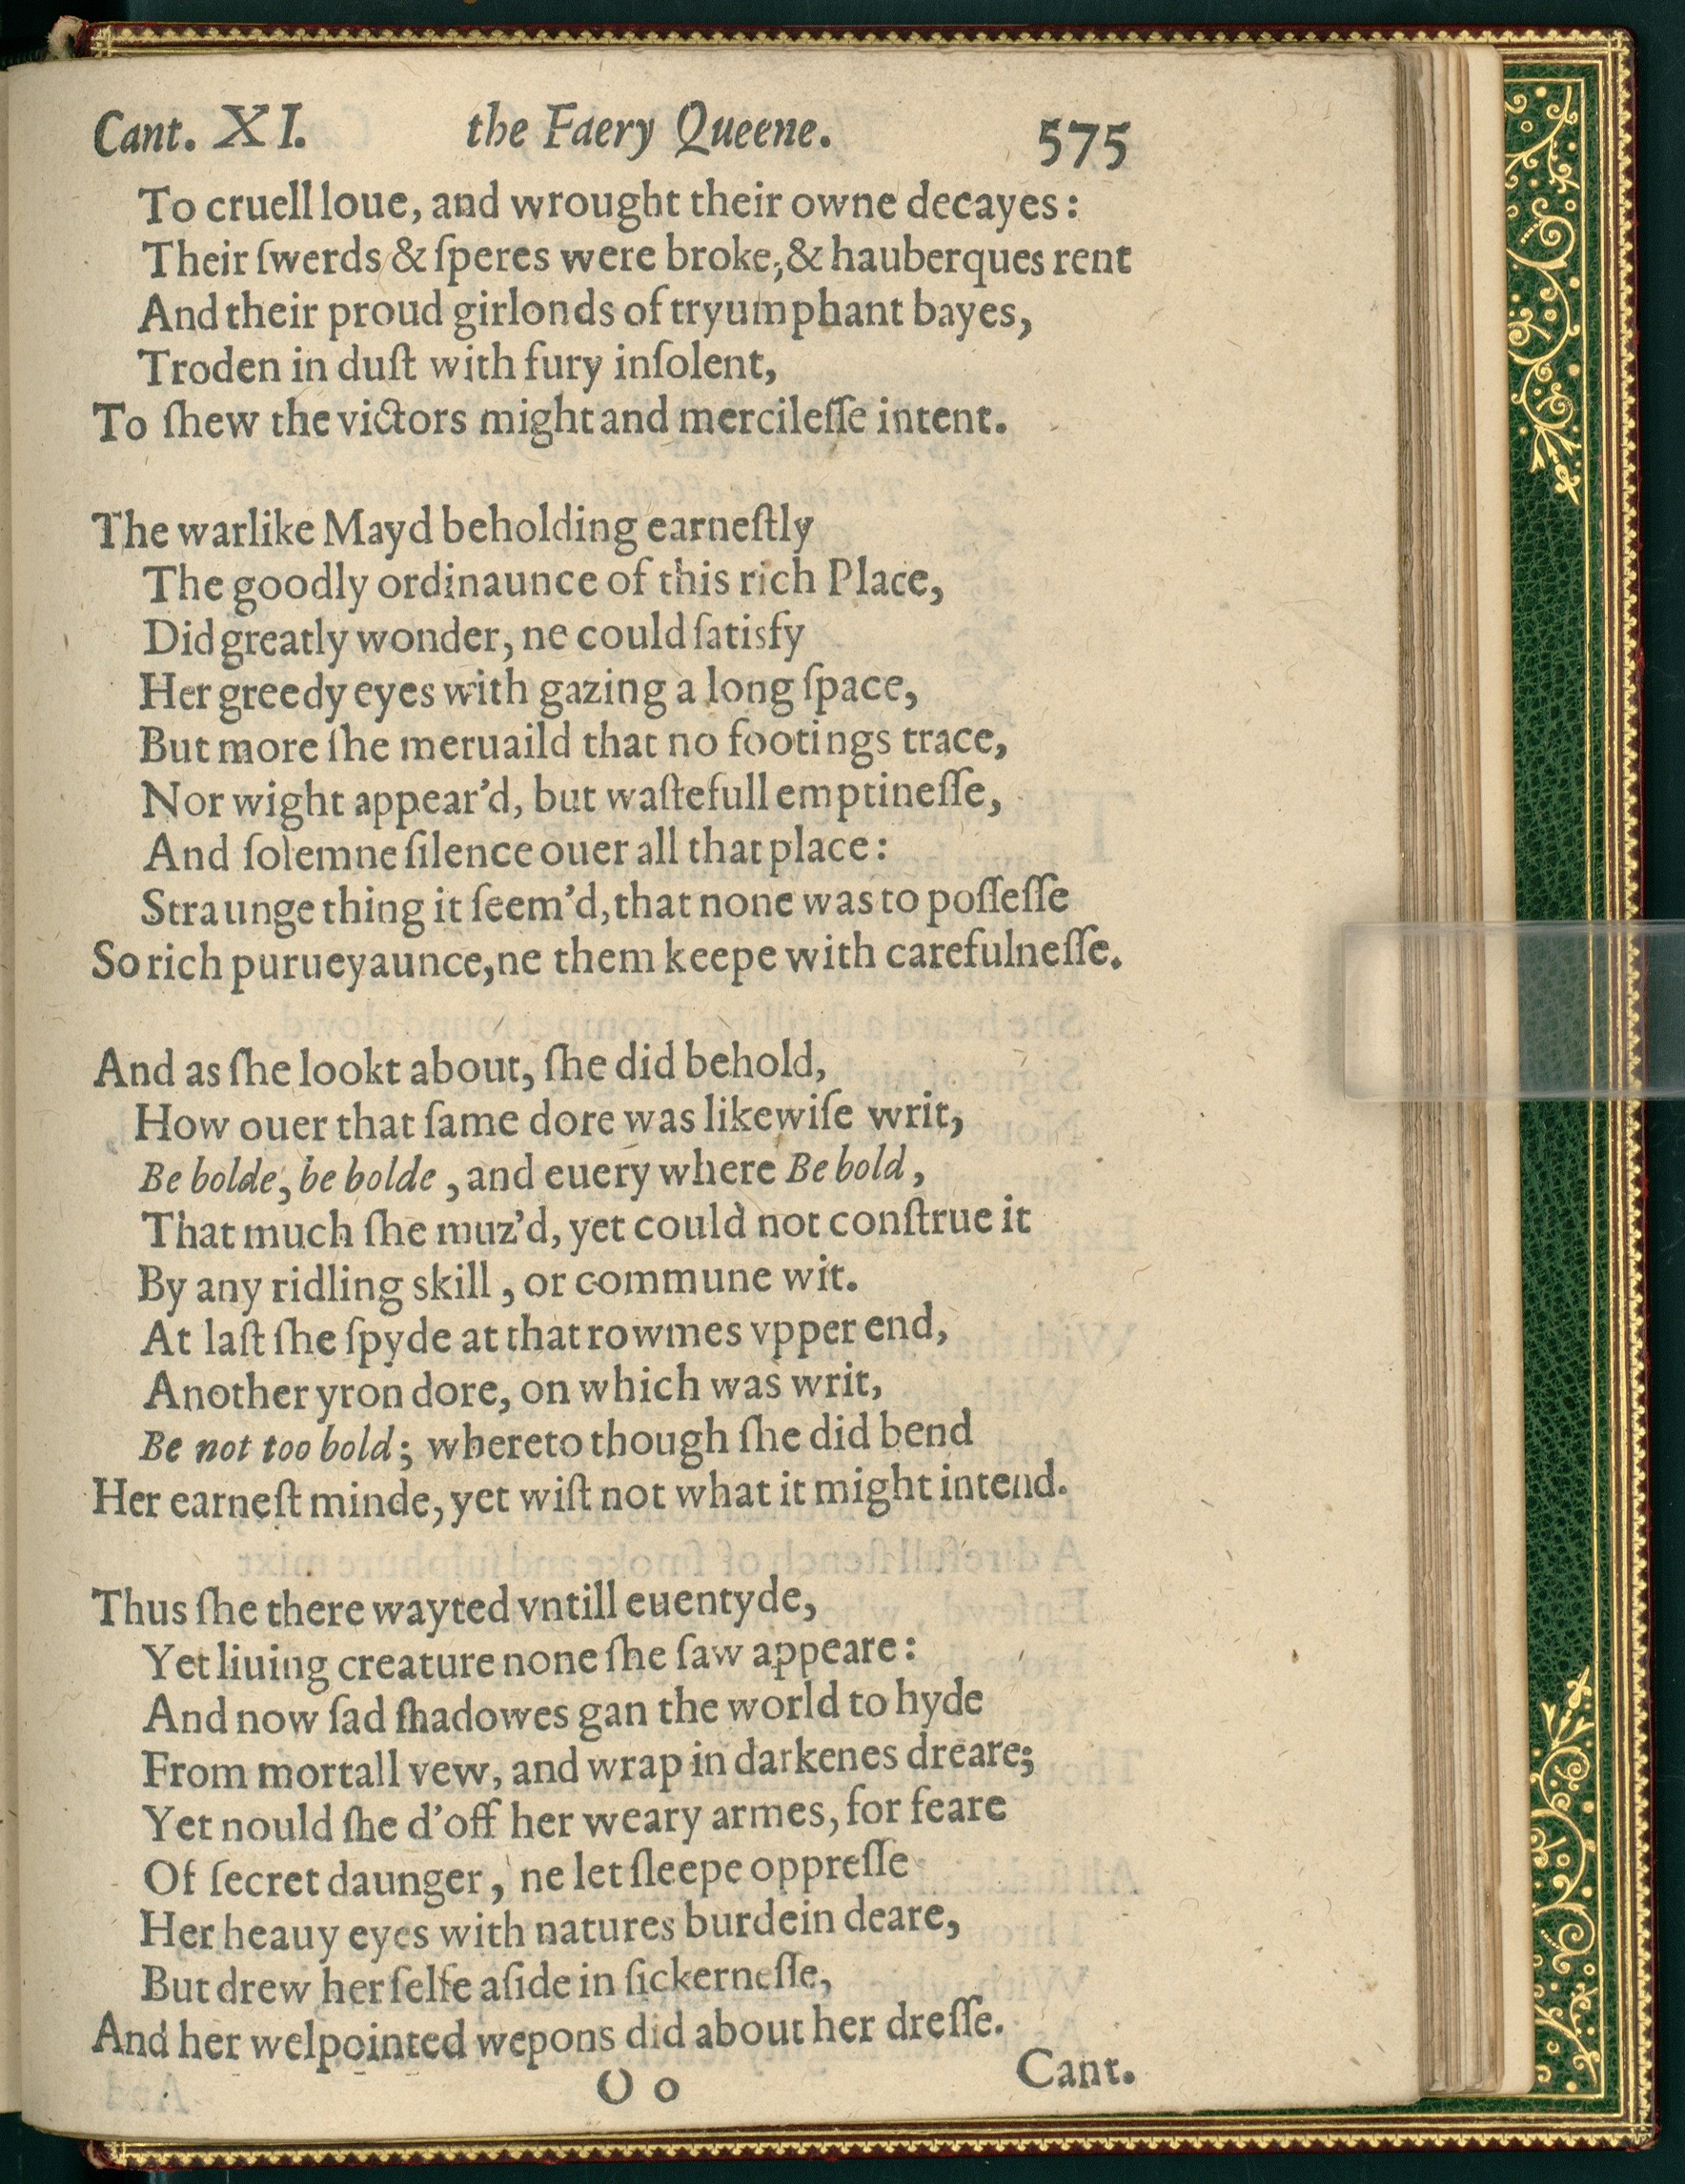 Cant. XI. the Faery Queene. 575
To cruell loue, and wrought their owne decayes:
Their ſwerds & ſperes were broke, & hauberques rent
And their proud girlonds of tryumphant bayes,
Troden in duſt with fury inſolent,
To ſhew the victors might and mercileſſe intent.
The warlike Mayd beholding earneſtly
The goodly ordinaunce of this rich Place,
Did greatly wonder, ne could ſatisfy
Her greedy eyes with gazing a long ſpace,
But more ſhe meruaild that no footings trace,
Nor wight appear'd, but waſtefull emptineſſe,
And ſolemne ſilence ouer all that place:
Straunge thing it ſeem'd, that none was to poſſeſſe
So rich purueyaunce, ne them keepe with carefulneſſe.
And as ſhe lookt about, ſhe did behold,
How ouer that ſame dore was likewiſe writ,
Be bolde, be bolde, and euery where Be bold,
That much ſhe muz'd, yet could not conſtrue it
By any ridling skill, or commune wit.
At laſt ſhe ſpyde at that rowmes vpper end,
Another yron dore, on which was writ,
Be not too bold; whereto though ſhe did bend
Her earneſt minde, yet wiſt not what it might intend.
Thus ſhe there wayted vntill euentyde,
Yet liuing creature none ſhe ſaw appeare:
And now ſad ſhadowes gan the world to hyde
From mortall vew, and wrap in darkenes dreare;
Yet nould ſhe d'off her weary armes, for feare
Of ſecret daunger, ne let ſleepe oppreſſe
Her heauy eyes with natures burdein deare,
But drew her ſelfe aſide in ſickerneſſe,
And her welpointed wepons did about her dreſſe.
O o Cant.